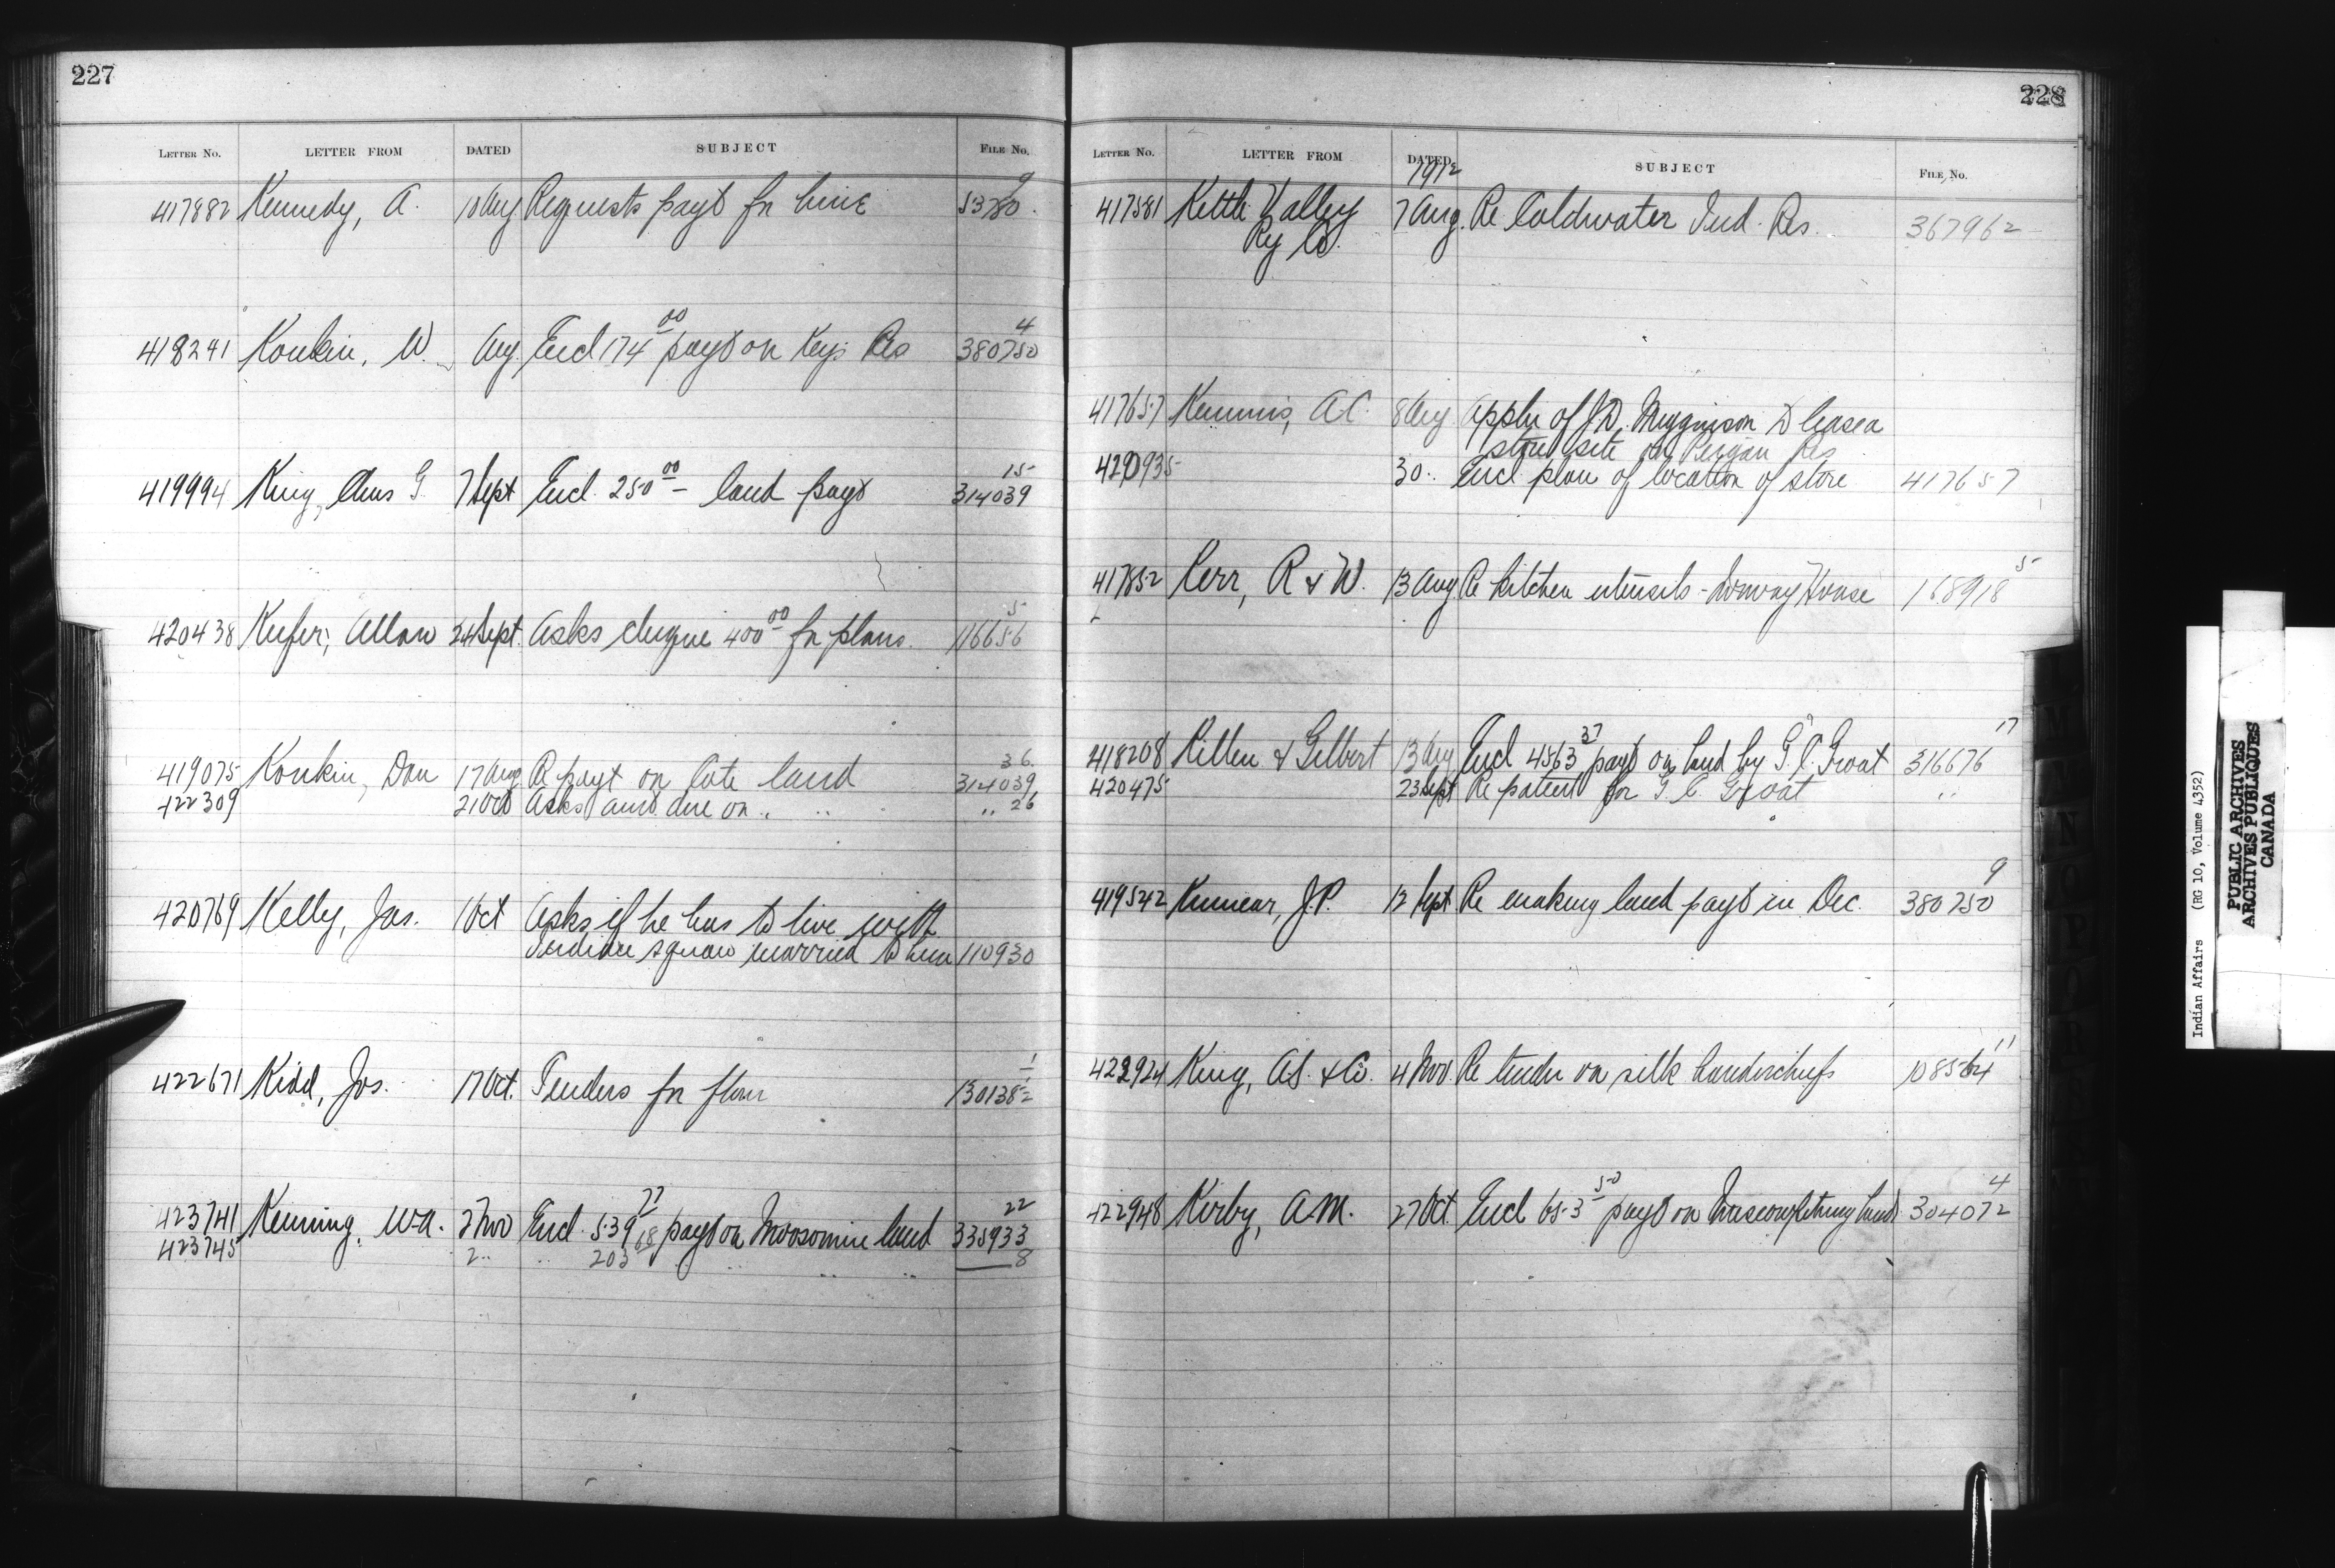 227
LETTER No. LETTER FROM DATED SUBJECT FILE No.
9
417882 Kennedy, A. 10 Aug Requests payt fr lime 53780.
00 4
418241 Konkin, W. Aug Encl 174 payt on Keys Res 380750
00 15
419994 King, Chas G. 7 Sept Encl. 250 — land payt 314039
00 5
420438 Keefer, Allan 24 Sept. Asks cheque 400 fr plans. 116656
36.
419075 Konkin, Dan 17 Aug Re payt on Cote land 314039
422309 21 Oct Asks amt due on .. .. .. 26
420769 Kelly, Jas. 1 Oct Asks if he has to live with
Indian squaw married to him 110930
1
422671 Kidd, Jos. 17 Oct. Tenders fr flour 130138-2
77 22
423741 Kenning, W.A. 2 Nov Encl. 539 payt on Moosomin land 335933
423745 2 .. .. 203 68 .. .. .. 8
228
LETTER No. LETTER FROM DATED SUBJECT FILE No.
1912
417581 Kettle Valley 7 Aug. Re Coldwater Ind. Res. 367962
Ry Co.
417657 Kemmis, A.C. 8 Aug Appln of J.D. Megginson to lease a
store site on Peigan Res
420935 30. Encl plan of location of store 417657
5
417852 Kerr, R & W. 13 Aug Re kitchen utensils - Norway House 168918
37 17
418208 Killen & Gilbert 13 Aug Encl 4563 payt on land by G. C. Groat 316676
420475 23 Sept Re patent for G C Groat ..
9
419542 Kinnear, J.P. 12 Sept Re making land payt in Dec. 380750
11
422924 King, A.S. & Co. 4 Nov. Re tender on silk handerchiefs 108564
50 4
422948 Kirby, A.M. 27 Oct. Encl 653 payt on land 304072
Indian Affairs (RG 10, Volume 4352)
PUBLIC ARCHIVES
ARCHIVES PUBLIQUES
CANADA